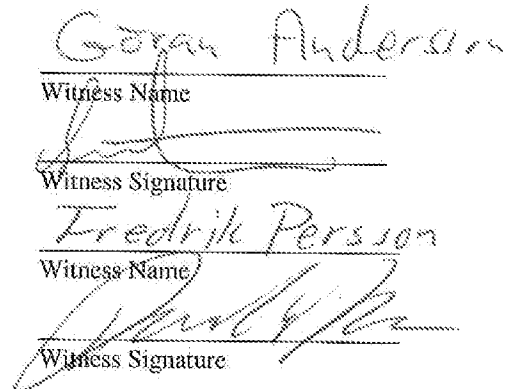 Göran Anderson
Witness Name
Witness Signature
Fredrik Persson
Witness Name
Witness Signature